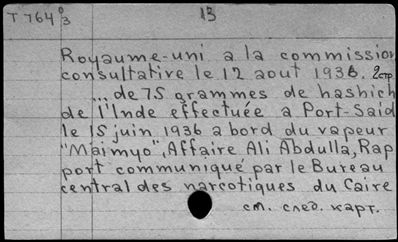 T 764 °/3
13
Royaume-uni a la commission
consultative le 12 aout 1936. 2стр.
... de 75 grammes de hashich
de l'Inde effectuée a Port-Said
le 15 juin 1936 a bord du vapeur
"Maimyo", Affaire Ali Abdulla, Rap
port communiqué par le Bureau
central des narcotiques du Caire
ст. след. карт.